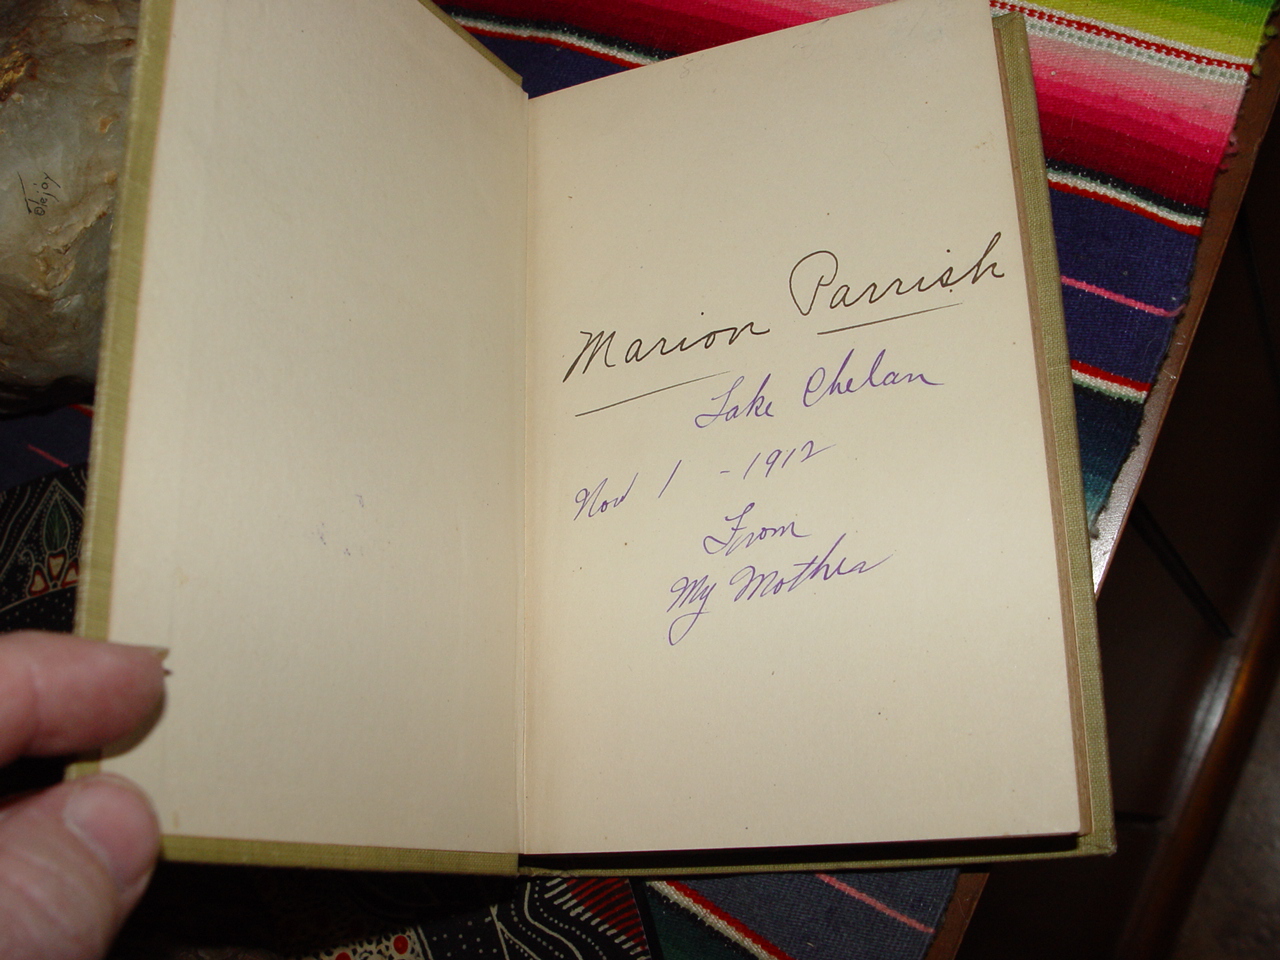 Marion Parrish
Lake Chelan
Nov 1 - 1912
From
My Mother